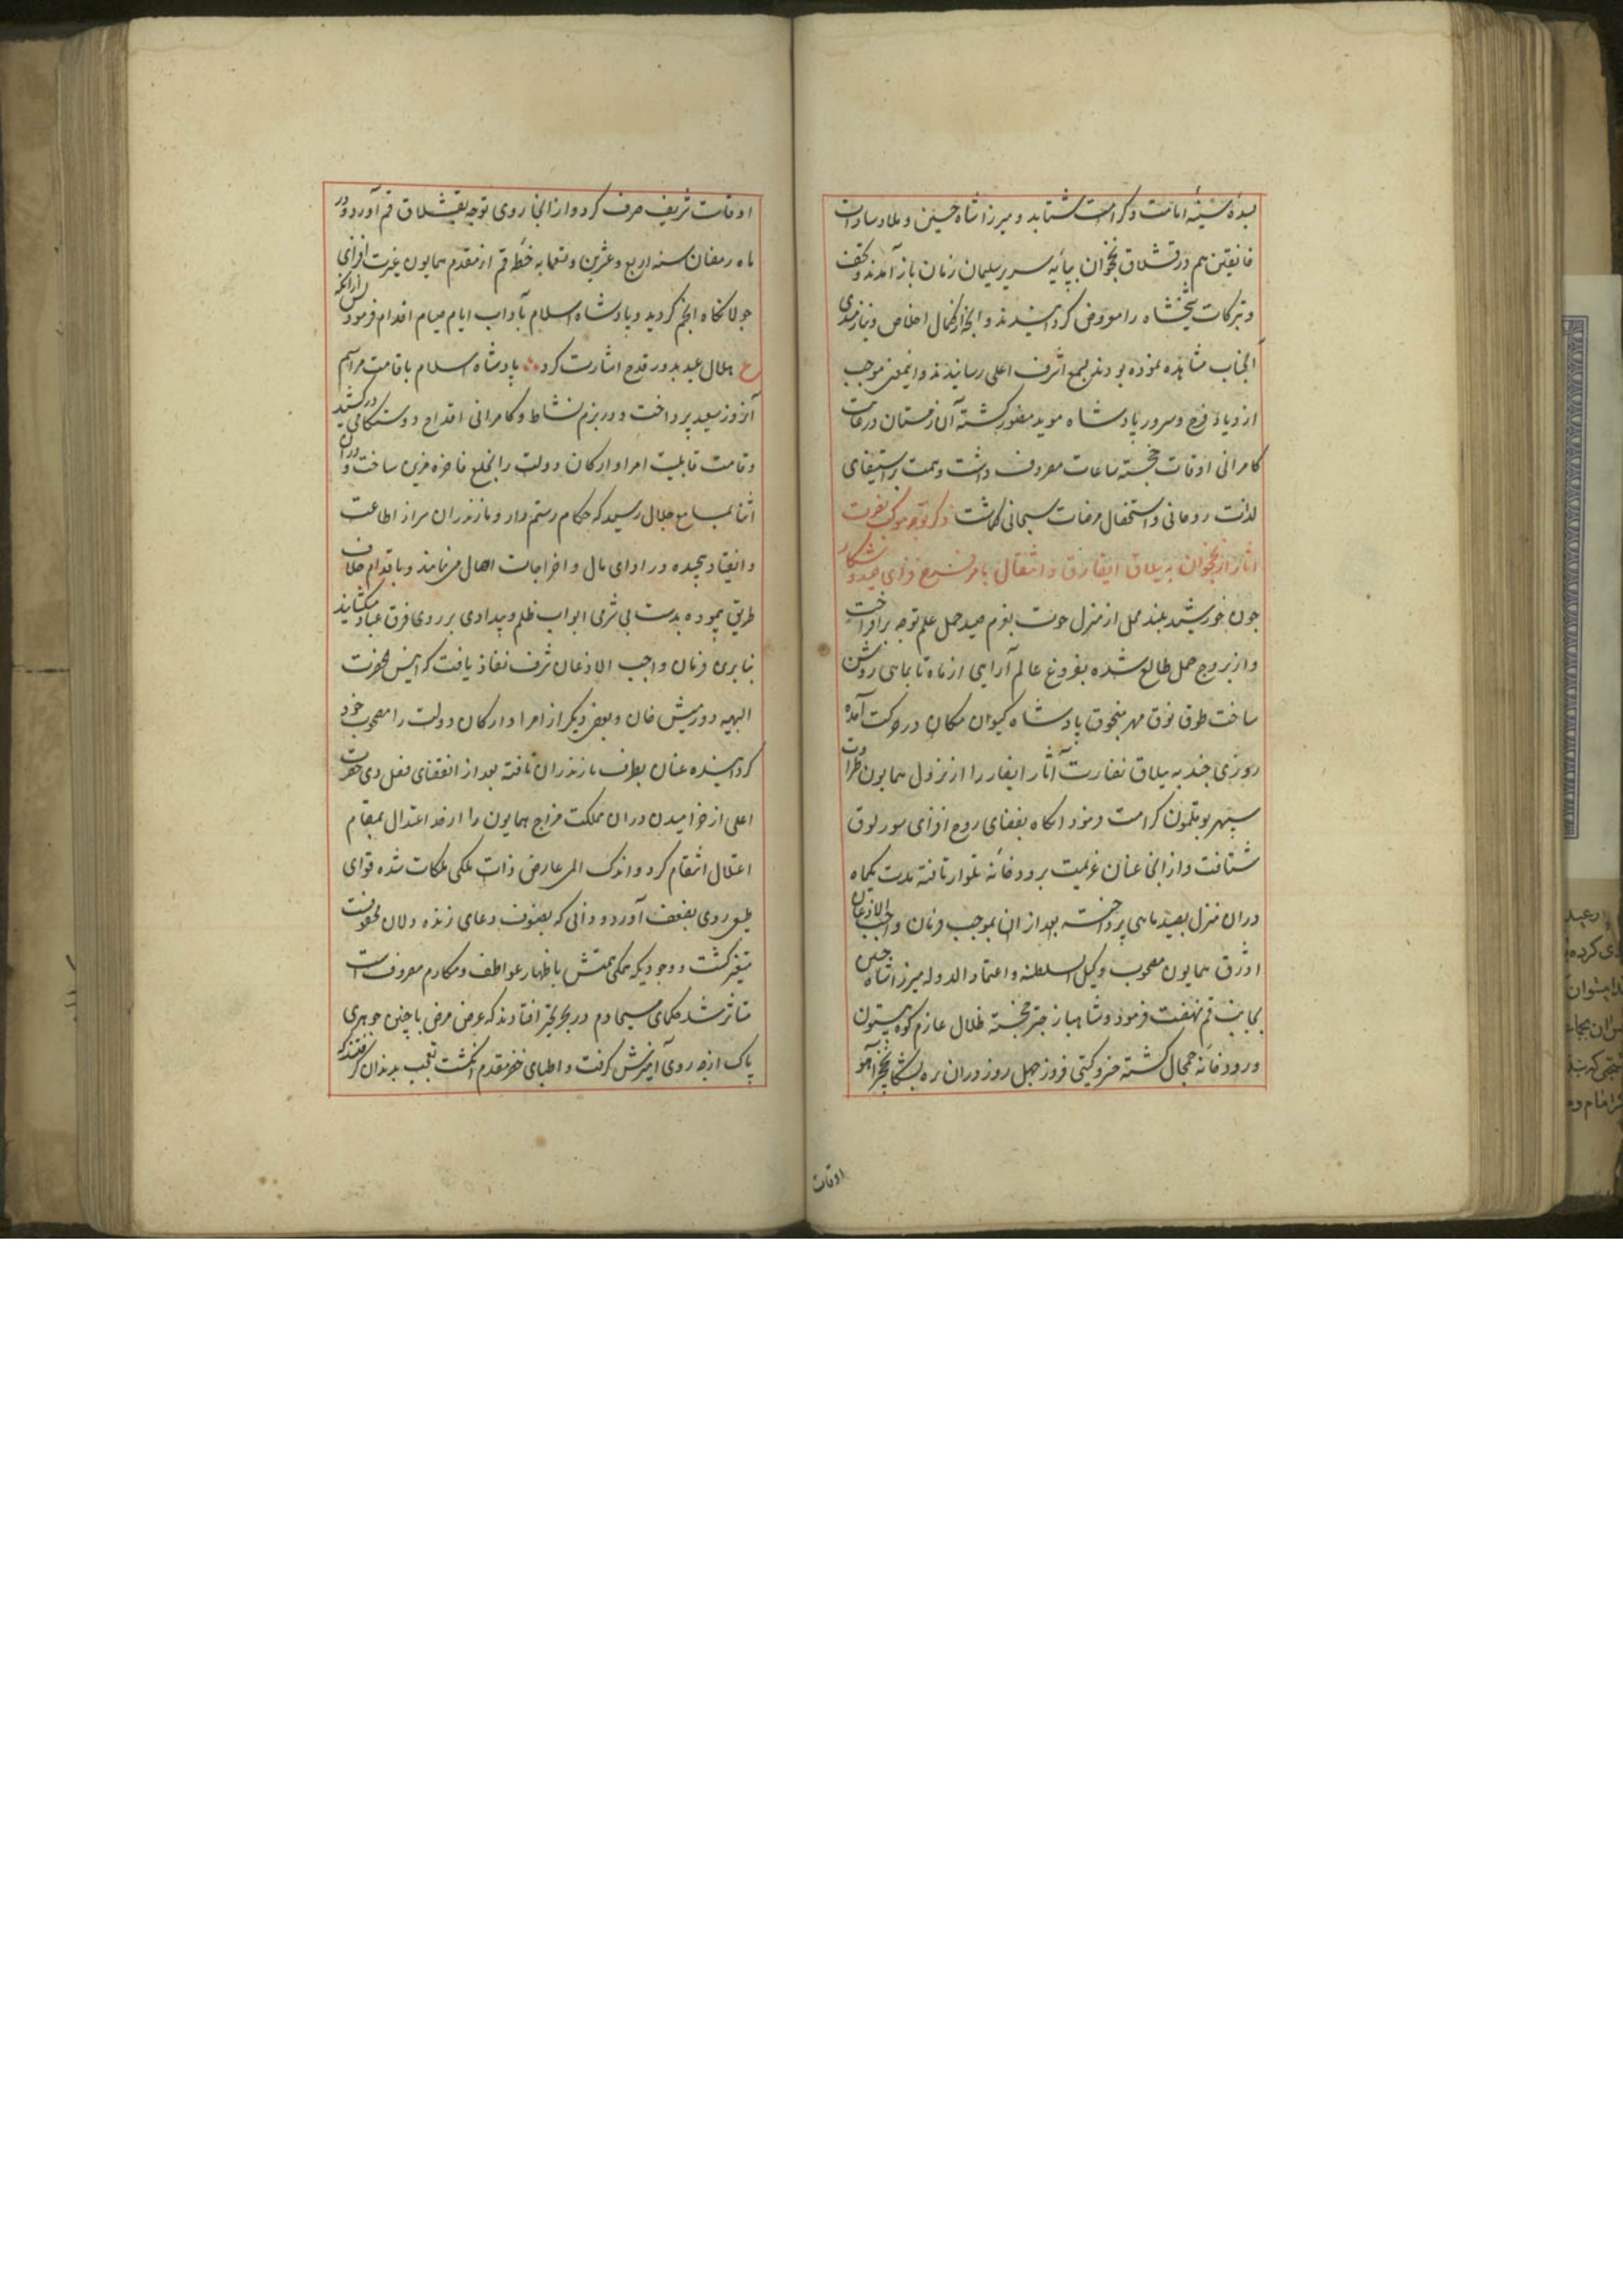 بسدهٔ سنیهٔ امامت و کرامت شتابد و میرزا شاه حسین و علاء سادات
خانقین هم در قشلاق نخجوان بپایه سریر سلیمان زمان باز آمدند و تحف
و تبرکات شیخشاه را معروض کردانیدند و آنچه از کمال اخلاص و نیازمندی
آنجناب مشاهده نموده بودند بسمع اشرف اعلی رسانیدند و اینمعنی موجب
ازدیاد فرح و سرور پادشاه موید منصور کشته آن زمستان در غایت
کامرانی اوقات خجسته ساعات مصروف داشت و همت بر استیفای
لذات روحانی و استحصال مرضات سبحانی کماشت ذکر توجه موکب نصرت
آثار از نخجوان به ییلاق ایقار و انتقال بامر فرح فزای صید و شکار
چون خورشید بلند محل از منزل حوت بعزم صید حمل علم توجه برافراخت
و از بروج حمل طالع شده بفروغ عالم آرایی از ماه تا بماهی روشن
ساخت طوق فوق مهر منجوق پادشاه کیوان مکان در حرکت آمده
روزی چند به ییلاق نضارت آثار ایقار را از نزول همایون طراوت
سپهر بوقلمون کرامت فرمود آنکاه بفضای روح افزای سورلوق
شتافت و از آنجا عنان عزیمت برودخانه تلوار تافته مدت یکماه
در آن منزل بصید ماهی پرداخته بعد از آن بموجب فرمان واجب الاذعان
اردوی همایون مصحوب وکیل السلطنه و اعتماد الدوله میرزا شاه حسین
بجانب قم نهضت فرمود و شاهباز چتر خجسته ظلال عازم کوه بیستون
و رودخانه جمجال کشته خسرو کیتی فروز چهل روز در آن ره بشکار نخجیر و آهو
اوقات
اوقات شریف صرف کرد و از آنجا روی توجه بقشلاق قم آورد و در
ماه رمضان سنه اربع و عشرین و تسعمایه خطه قم از مقدم همایون غیرت افزای
جولانکاه انجم کردید و پادشاه اسلام بآداب ایام صیام اقدام فرمود پس از آنکه
ع هلال عید بدور قدح اشارت کرد پادشاه اسلام باقامت مراسم
آن روز سعید پرداخت و در بزم نشاط و کامرانی اقداح دوستکامی در کشید
و قامت قابلیت امرا و ارکان دولت را بخلع فاخره مزین ساخت و در آن
اثنا بمسامع جلال رسید که حکام رستمدار و مازندران سر از اطاعت
و انقیاد پیچیده در ادای مال و اخراجات اهمال می نمایند و باقدام خلاف
طریق پیموده بدست بی شرمی ابواب ظلم و بیدادی بر روی فرق عباد میکشایند
بنا برین فرمان واجب الاذعان شرف نفاذ یافت که انیس الحضرت
البهیه دورمیش خان و بعضی دیکر از امرا و ارکان دولت را مصحوب خود
کردانیده عنان بطرف مازندران تافته بعد از انقضای فصل دی حضرت
اعلی از خرامیدن در آن مملکت مزاج همایون را از حد اعتدال بمقام
اعتلال انتقام کرد و اندک المی عارض ذات ملکی ملکات شده قوای
طبیعی روی بضعف آورد و ذاتی که بصنوف دعای زنده دلان محفوفست
متغیر کشت و وجودیکه همکی همتش باظهار عواطف و مکارم مصروف است
متاثر شد حکمای مسیحا دم در بحر تحیر افتادند که عرض مرض با چنین جوهری
پاک از چه روی آمیزش کرفت و اطبای خضر مقدم انکشت تعجب بدندان کرفتند که